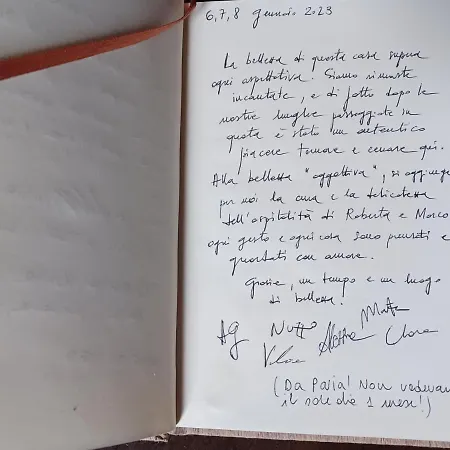 6,7,8 gennaio 2023
La bellezza di questa casa supera
ogni aspettativa. Siamo rimaste
incantate, e di fatto dopo le
nostre lunghe passeggiate in
quota è stato un autentico
piacere tornare e cenare qui.
Alla bellezza "oggettiva", si aggiunge
per noi la cura e la delicatezza
dell'ospitalità di Roberta e Marco
ogni gesto e ogni cosa sono pensati e
guardati con amore.
Grazie, un tempo e un luogo
di bellezza!
AG
Chiara
(Da Pavia! Non vedevamo
il sole da 1 mese!)